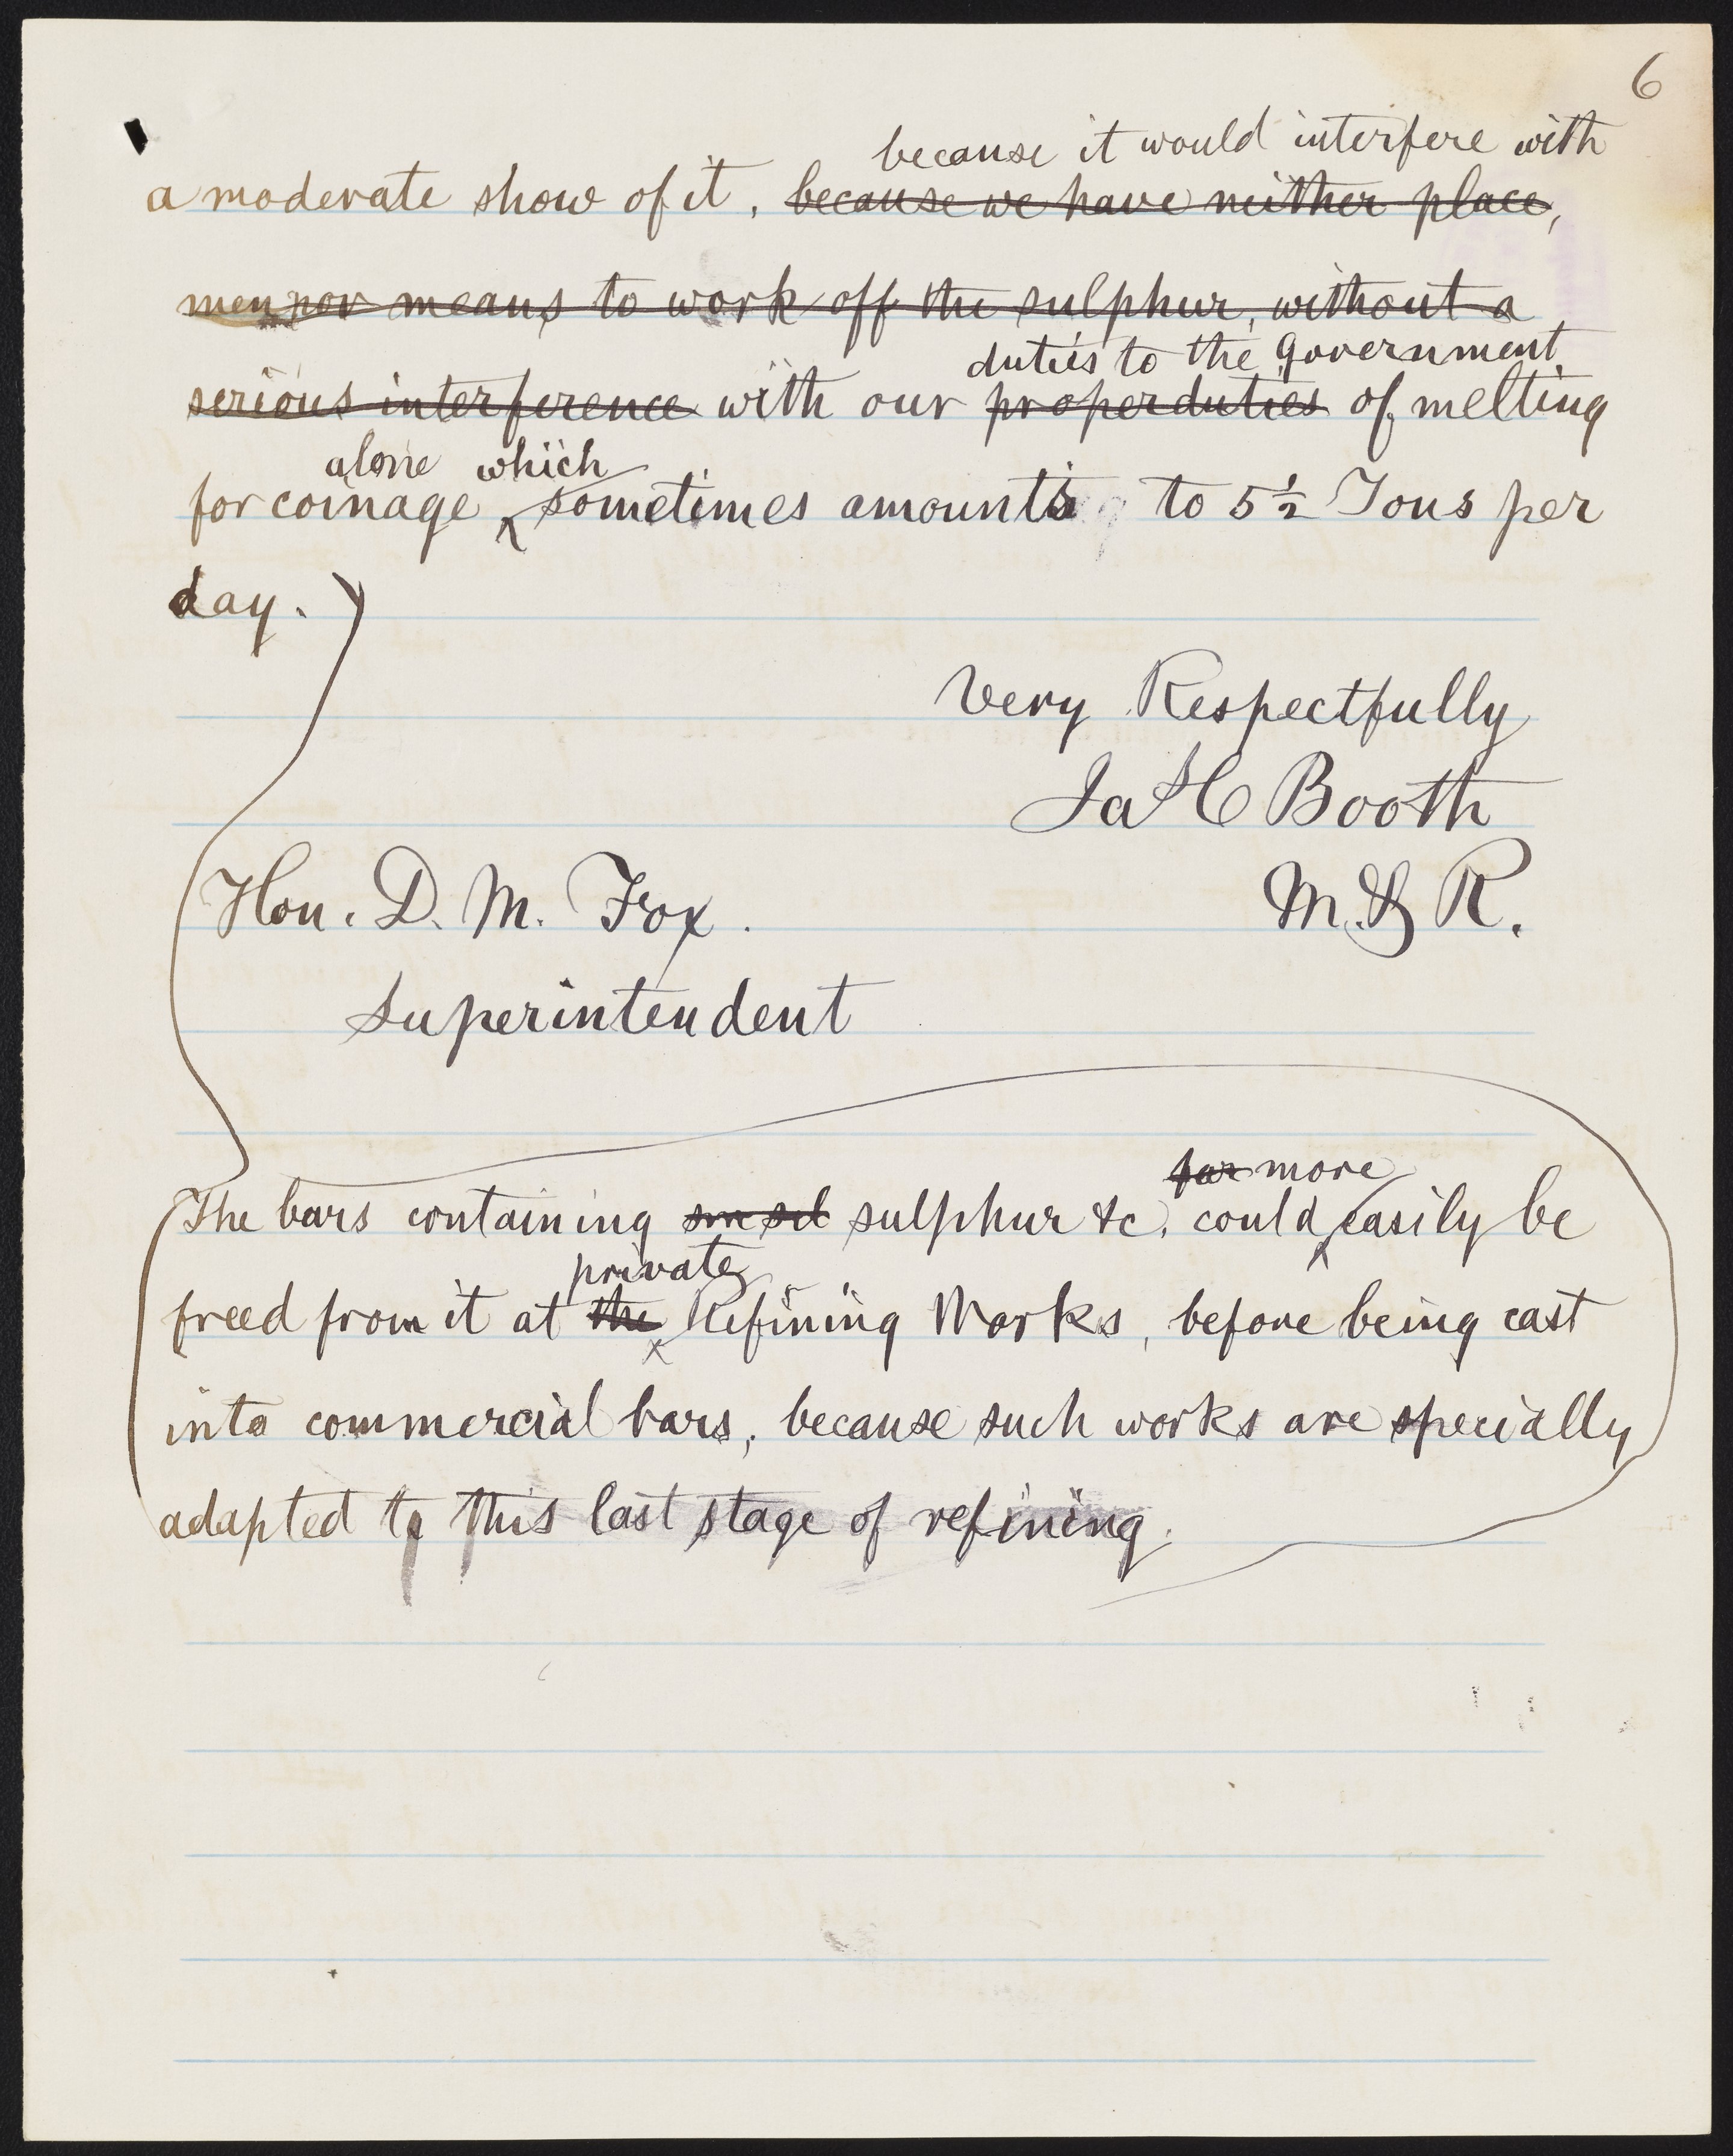 6
because it would interfere with
a moderate show of it, because we have neither place,
men nor means to work off the sulphur, without a
duties to the Government
serious interference with our proper duties of melting
alone which
for coinage sometimes amounts to 5½ Tons per
day.
Very Respectfully
Ja H C Booth
M. & R.
Hon. D. M. Fox.
Superintendent
far more
The bars containing sulphur &c. could easily be
private
freed from it at the Refining Works, before being cast
into commercial bars, because such works are specially
adapted to this last stage of refining.